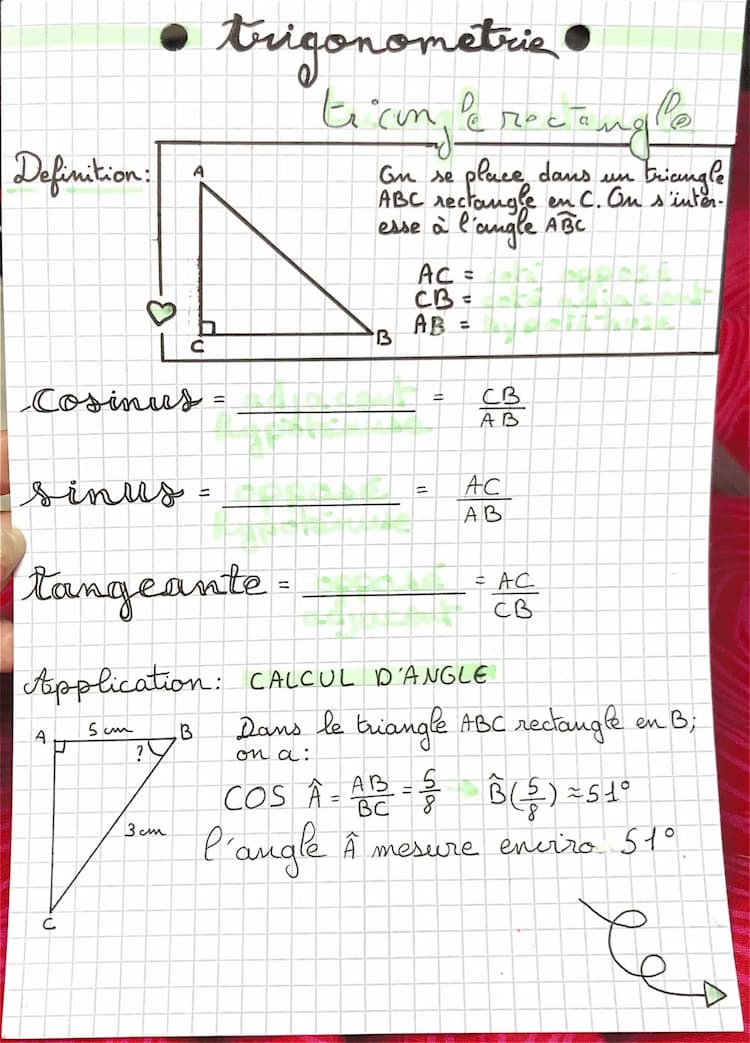 • trigonometrie •
triangle rectangle
Definition:
A
C
B
On se place dans un triangle
ABC rectangle en C. On s'intér-
esse à l'angle AB̂C
AC = coté opposé
CB = coté adjacent
AB = hypoténuse
Cosinus = adjacent / hypoténuse = CB / AB
sinus = opposé / hypoténuse = AC / AB
tangeante = opposé / adjacent = AC / CB
Application: CALCUL D'ANGLE
A 5 cm B
?
3 cm
C
Dans le triangle ABC rectangle en B;
on a:
COS Â = AB/BC = 5/8 B̂(5/8) ≈ 51°
l'angle Â mesure enviro 51°